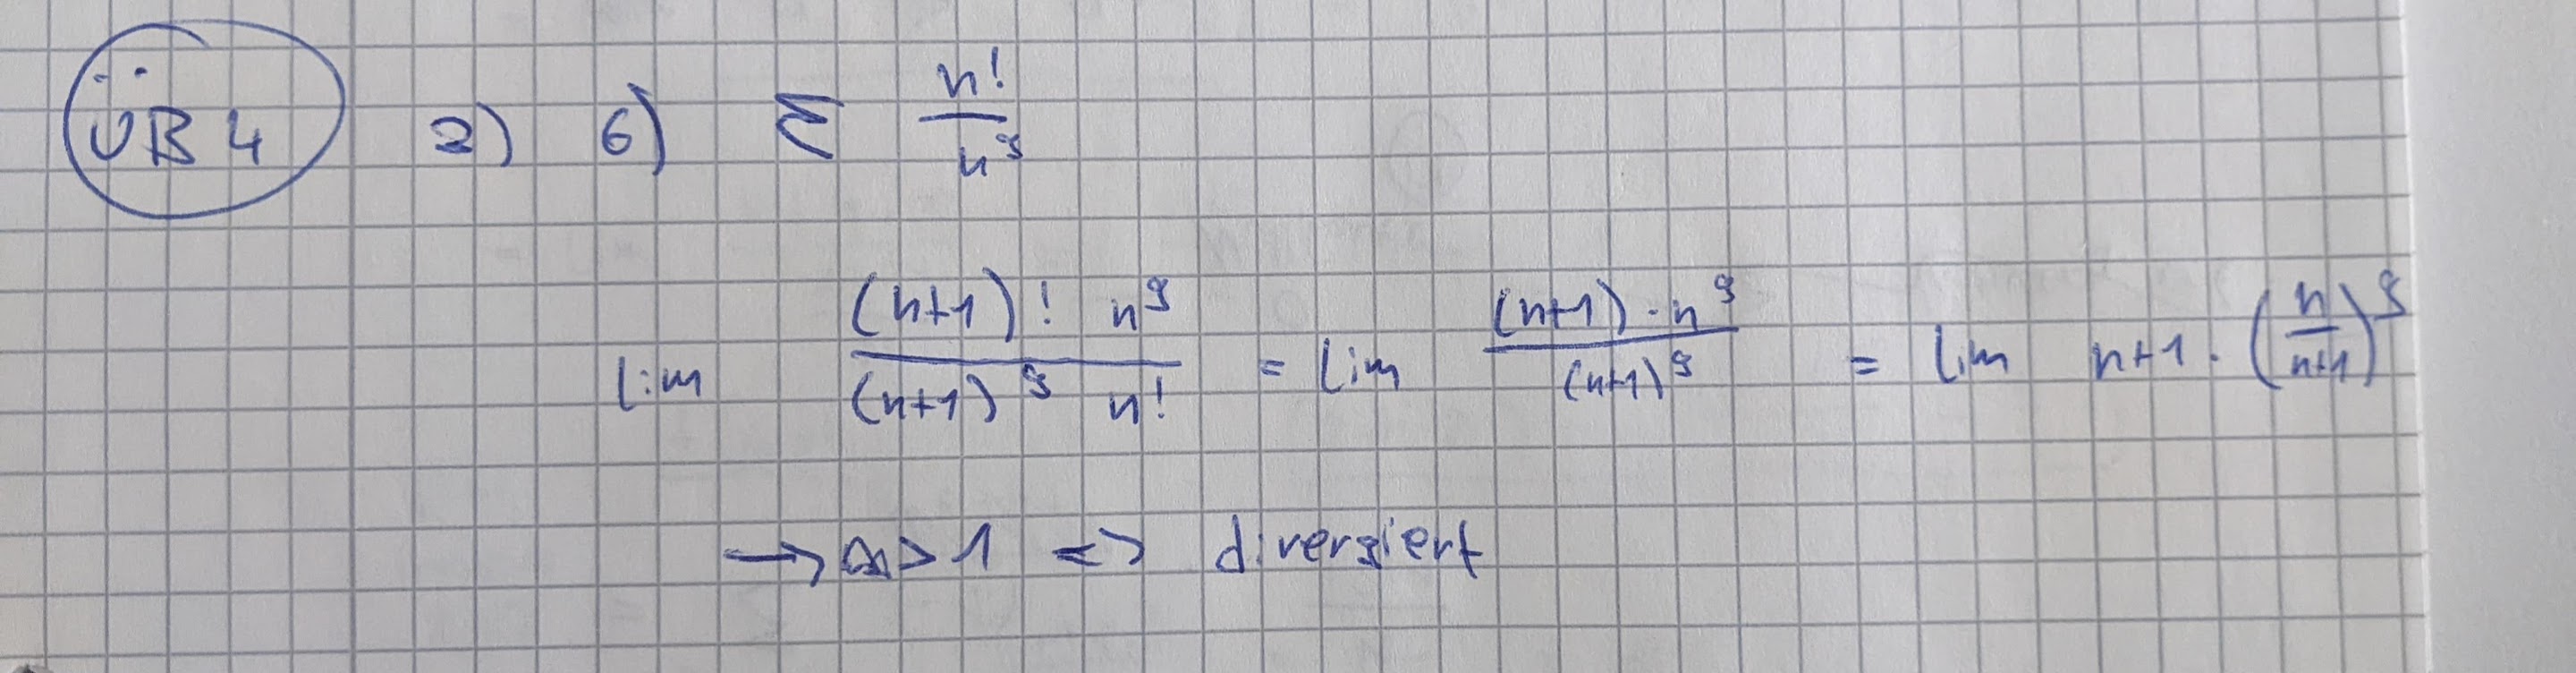 ÜB 4 2) 6) Σ n!/n⁹
lim (n+1)! n⁹ / (n+1)⁹ n! = lim (n+1)·n⁹ / (n+1)⁹ = lim n+1 · (n/n+1)⁹
→ ∞ > 1 <=> divergiert